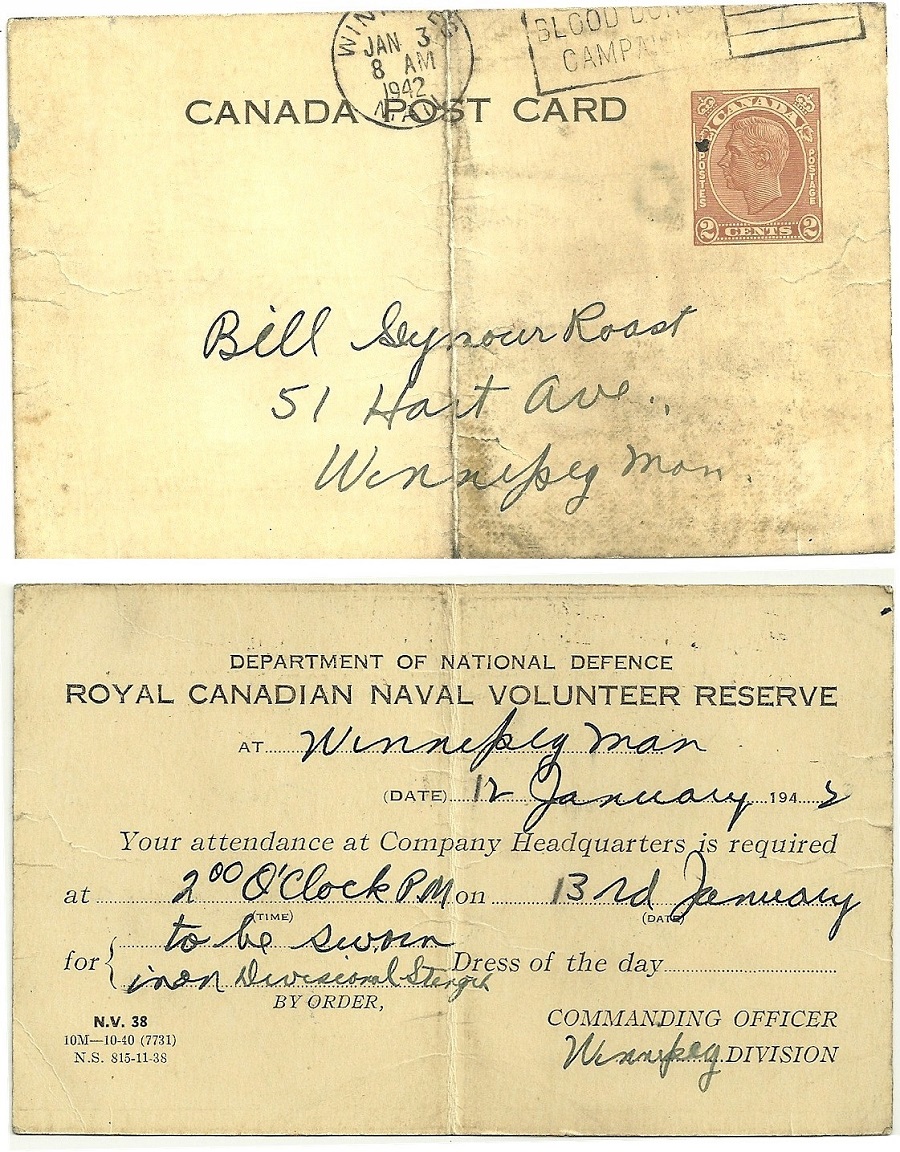 WINNIPEG
JAN 3
8 AM
1942
MAN
BLOOD DONOR
CAMPAIGN
CANADA POST CARD
CANADA
POSTES POSTAGE
2 CENTS 2
Bill Seymour Roast
51 Hart Ave.
Winnipeg Man.
DEPARTMENT OF NATIONAL DEFENCE
ROYAL CANADIAN NAVAL VOLUNTEER RESERVE
AT Winnipeg Man
(DATE) 12 January 1942
Your attendance at Company Headquarters is required
at 2 00 O'Clock PM on 13rd January
(TIME) (DATE)
for { to be sworn
in on Divisional Stengh Dress of the day
BY ORDER,
N.V. 38
10M—10-40 (7731)
N.S. 815-11-38
COMMANDING OFFICER
Winnipeg DIVISION